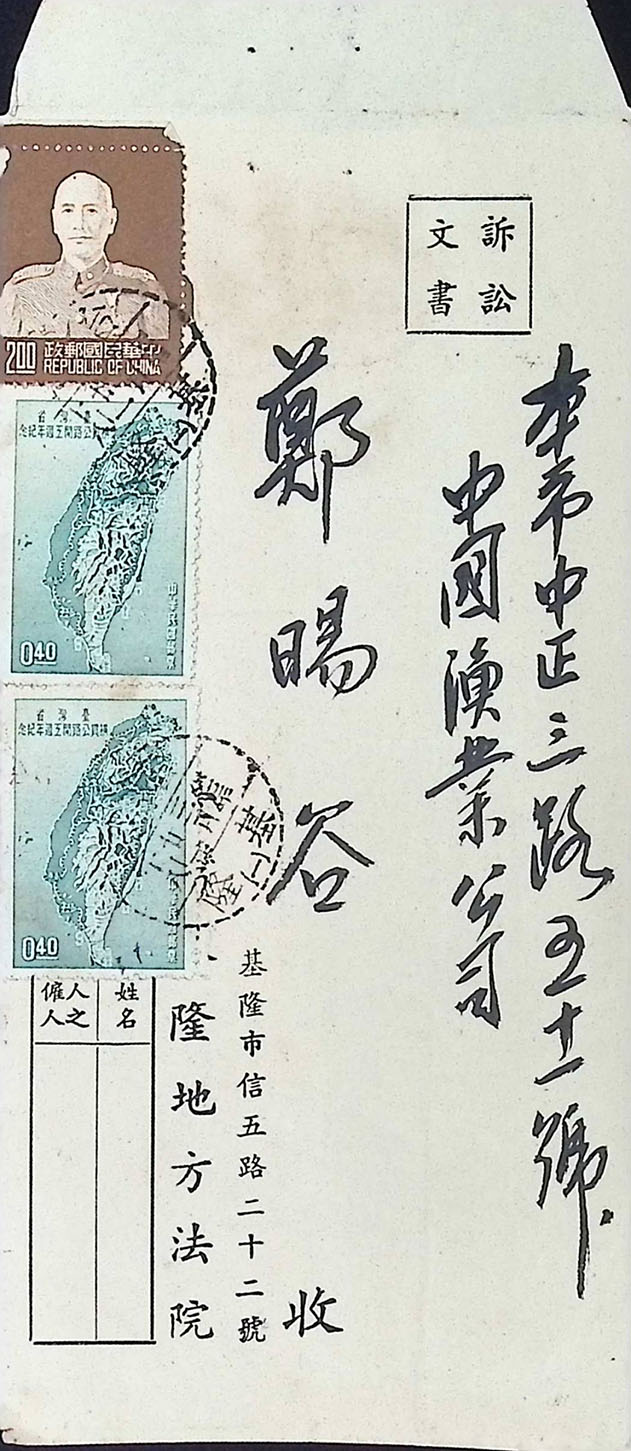 訴訟
文書
本市中正三路五十一號.
中國漁業公司
鄭暘谷 收
基隆市信五路二十二號
隆地方法院
姓名
人之
僱人
中華民國郵政
REPUBLIC OF CHINA
2.00
臺灣省
橫貫公路開工週年紀念
中華民國郵票
0.40
臺灣省
橫貫公路開工週年紀念
0.40
基隆(一)